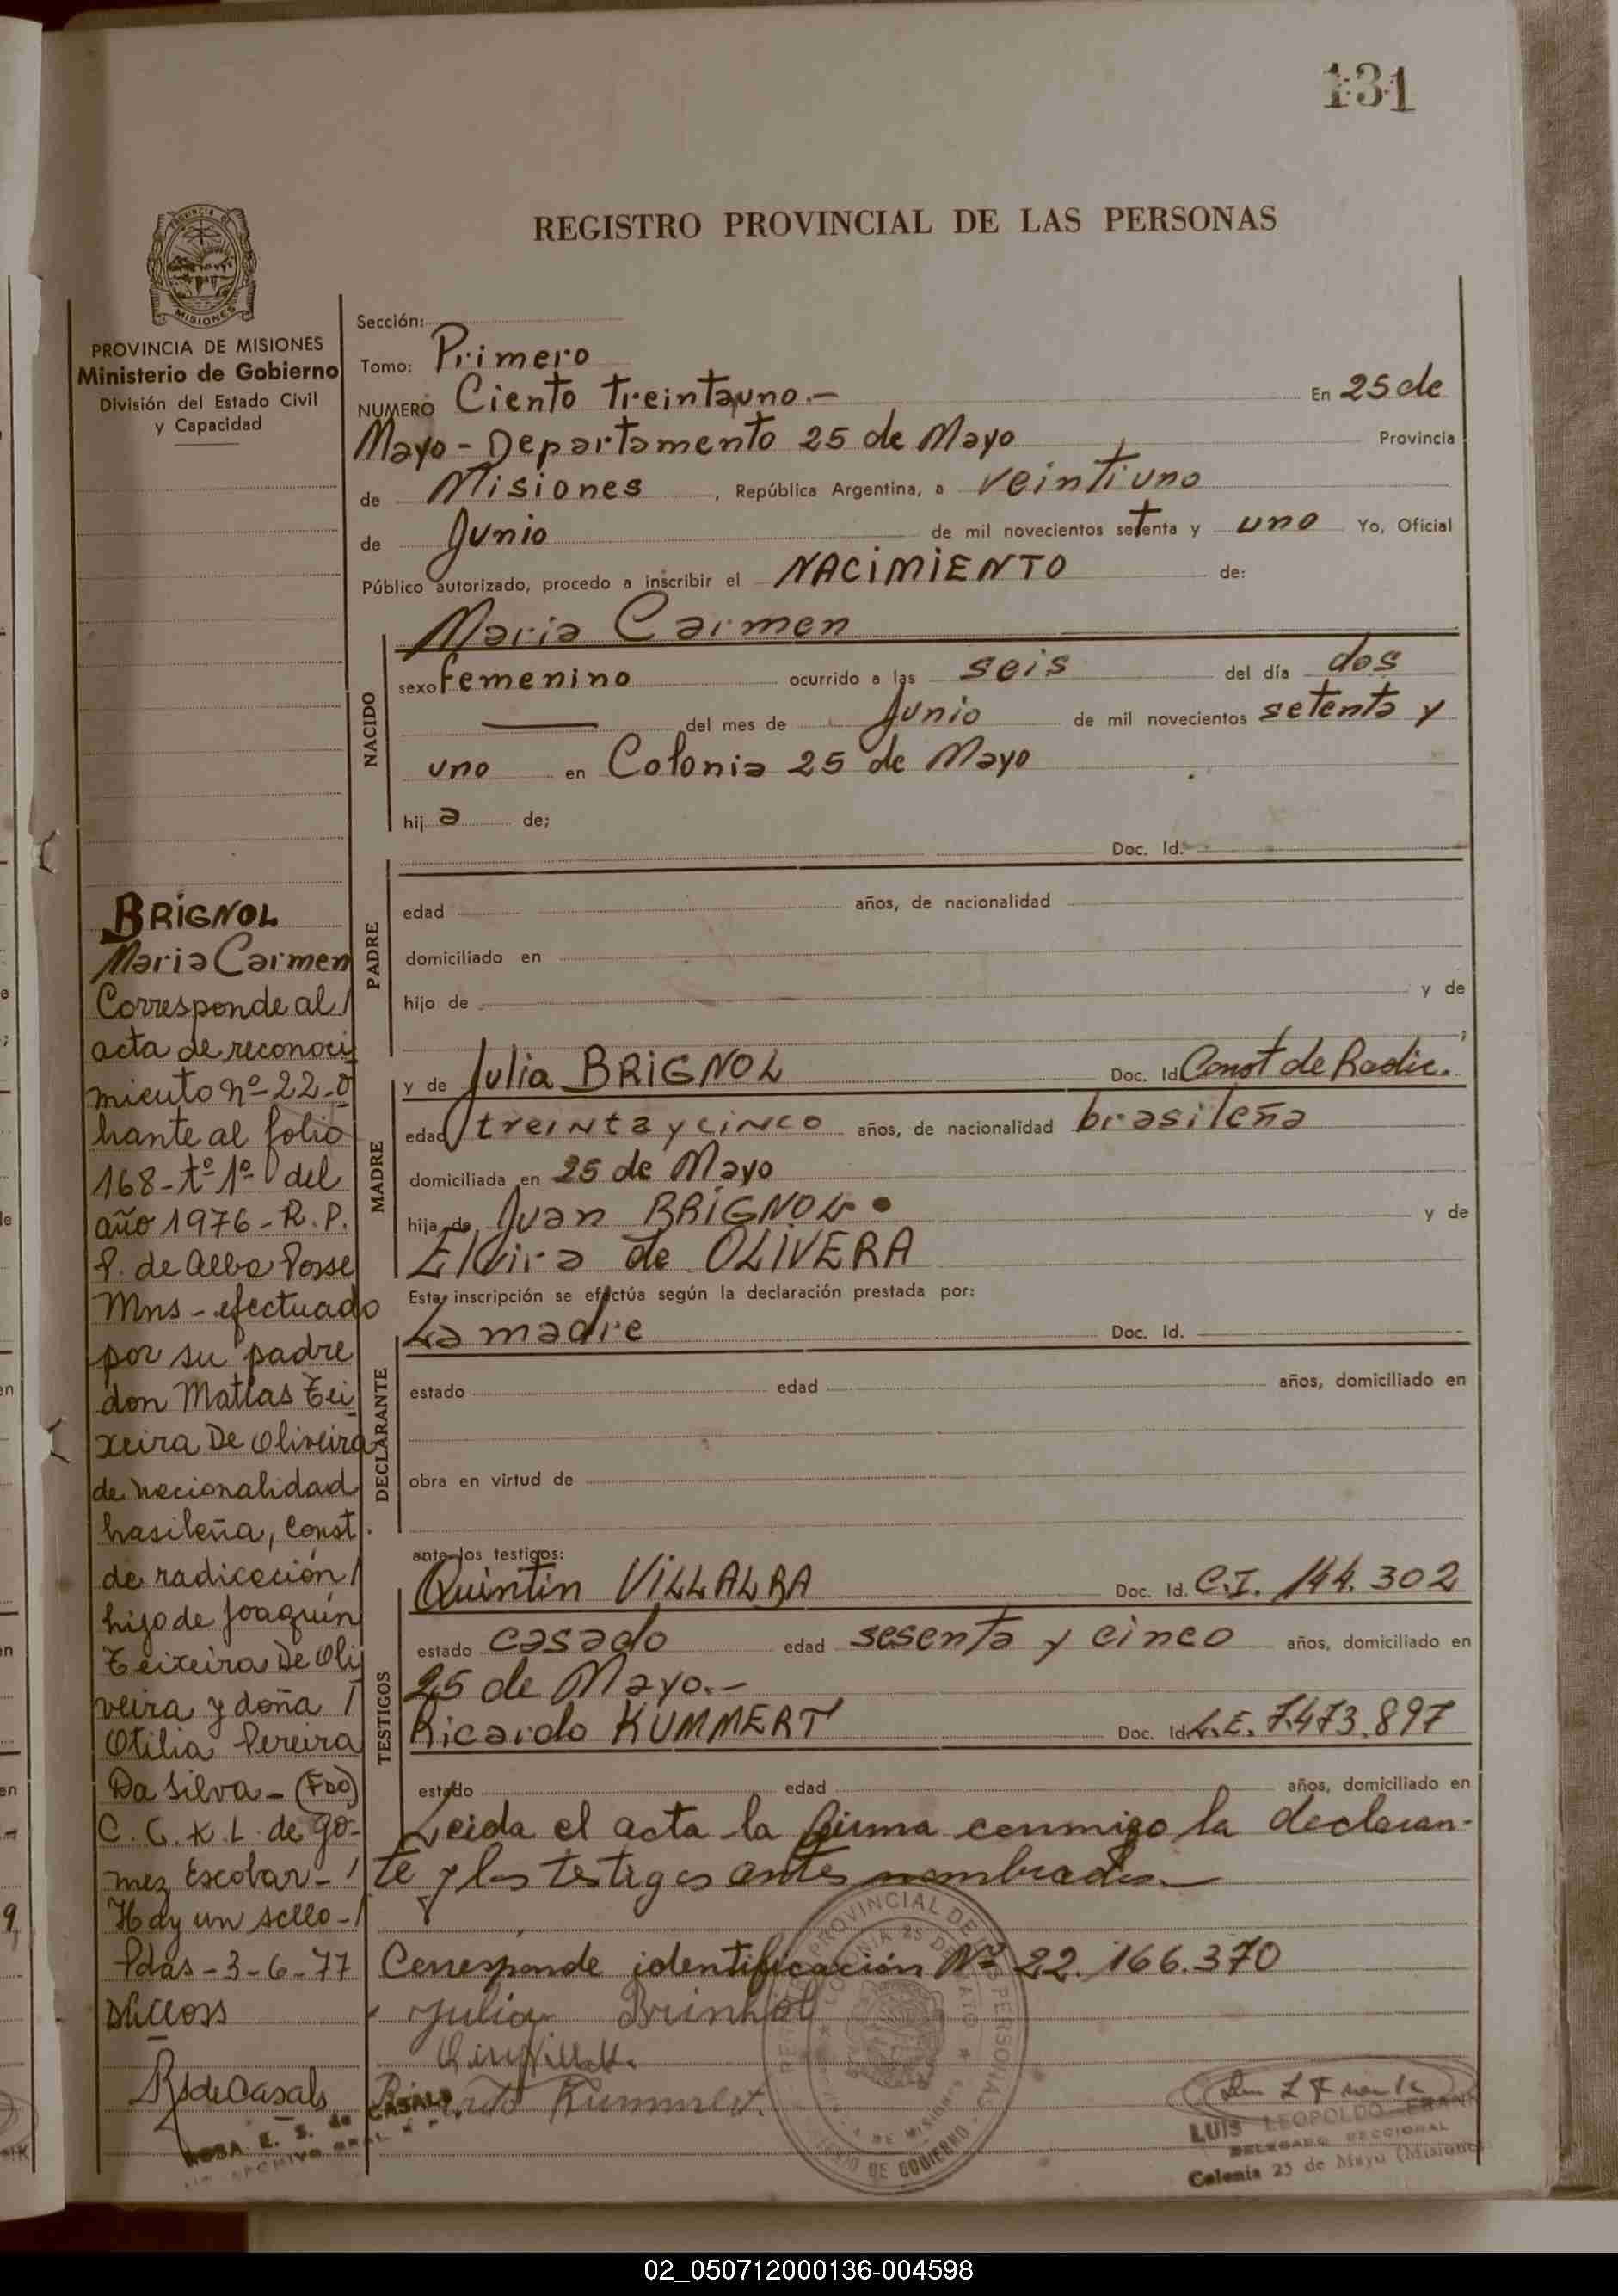 131
REGISTRO PROVINCIAL DE LAS PERSONAS
PROVINCIA DE
MISIONES
PROVINCIA DE MISIONES
Ministerio de Gobierno
División del Estado Civil
y Capacidad
Sección:
Tomo: Primero
NUMERO Ciento treintauno.- En 25 de
Mayo - Departamento 25 de Mayo Provincia
de Misiones, República Argentina, a veintiuno
de Junio de mil novecientos setenta y uno Yo, Oficial
Público autorizado, procedo a inscribir el NACIMIENTO de:
NACIDO
Maria Carmen
sexo femenino ocurrido a las seis del día dos
— del mes de Junio de mil novecientos setenta y
uno en Colonia 25 de Mayo
hij a de;
Doc. Id.
PADRE
edad años, de nacionalidad
domiciliado en
hijo de y de
;
MADRE
y de Julia BRIGNOL Doc. Id Const de Radic.
edad treinta y cinco años, de nacionalidad brasileña
domiciliada en 25 de Mayo
hija de Juan BRIGNOL y de
Elvira de OLIVERA
Esta inscripción se efectúa según la declaración prestada por:
DECLARANTE
La madre Doc. Id.
estado edad años, domiciliado en
obra en virtud de
ante los testigos:
TESTIGOS
Quintin VILLALBA Doc. Id. C.I. 144.302
estado casado edad sesenta y cinco años, domiciliado en
25 de Mayo.-
Ricardo KUMMERT Doc. Id L.E. 7.473.897
estado edad años, domiciliado en
Leida el acta la firma conmigo la declaran-
te y los testigos antes nombrados.—
Corresponde identificación Nº 22.166.370
Julia Brinhol
Kummert.
LUIS LEOPOLDO FRANK
DELEGADO SECCIONAL
Colonia 25 de Mayo (Misiones
BRIGNOL
Maria Carmen
Corresponde al /
acta de reconoci
miento nº 22-o
brante al folio
168-tº 1º del
año 1976-R.P.
P. de Alba Posse
Mns - efectuado
por su padre
don Matías Tei
xeira De Oliveira
de nacionalidad
brasileña, const.
de radicación /
hijo de Joaquín
Teixeira De Oli
veira y doña /
Otilia Pereira
Da Silva - (Fdo)
C. C. K. L. de Gó-
mez Escobar - /
Hay un sello - /
Pdas - 3-6-77
R S de Casals
ROSA E. S. de CASALS
02_050712000136-004598